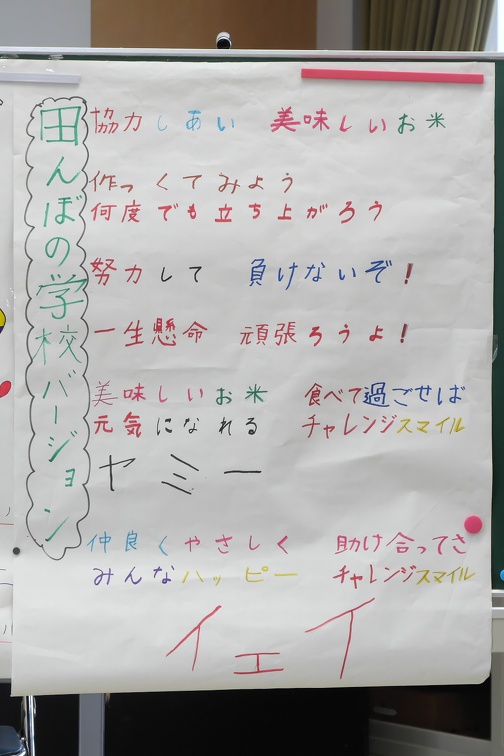 田んぼの学校バージョン
協力しあい 美味しいお米
作っくてみよう
何度でも立ち上がろう
努力して 負けないぞ!
一生懸命 頑張ろうよ!
美味しいお米 食べて過ごせば
元気になれる チャレンジスマイル
ヤミー
仲良くやさしく 助け合ってさ
みんなハッピー チャレンジスマイル
イエイ